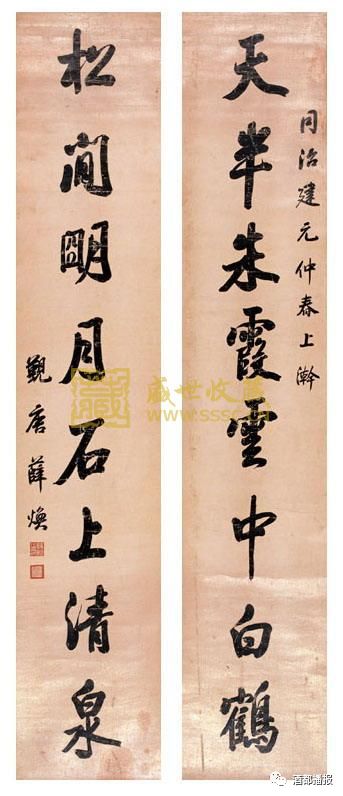 同治建元仲春上澣
天半朱霞雲中白鶴
松間明月石上清泉
覲唐薛煥
盛世收藏
www.sssc.cn
酒都播报